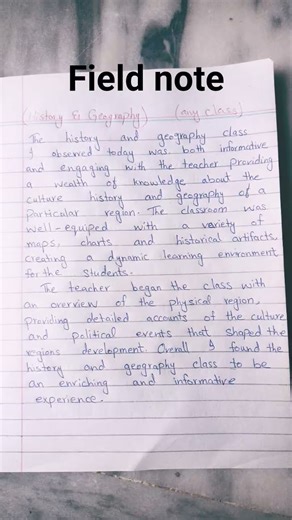 Field note
(History & Geography) (any class)
The history and geography class
I observed today was both informative
and engaging with the teacher providing
a wealth of knowledge about the
culture history and geography of a
particular region. The classroom was
well-equiped with a variety of
maps, charts and historical artifacts,
creating a dynamic learning environment
for the students.
The teacher began the class with
an overview of the physical region,
providing detailed accounts of the culture
and political events that shaped the
regions development. Overall I found the
history and geography class to be
an enriching and informative
experience.